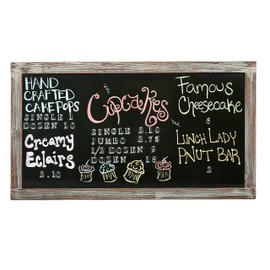 HAND
CRAFTED
CAKE POPS
SINGLE 1
DOZEN 10
Creamy
Eclairs
2.10
Cupcakes
SINGLE 2.10
JUMBO 3.75
1/2 DOZEN 9
DOZEN 16
Famous
Cheesecake
6
LUNCH LADY
PNUT BAR
2